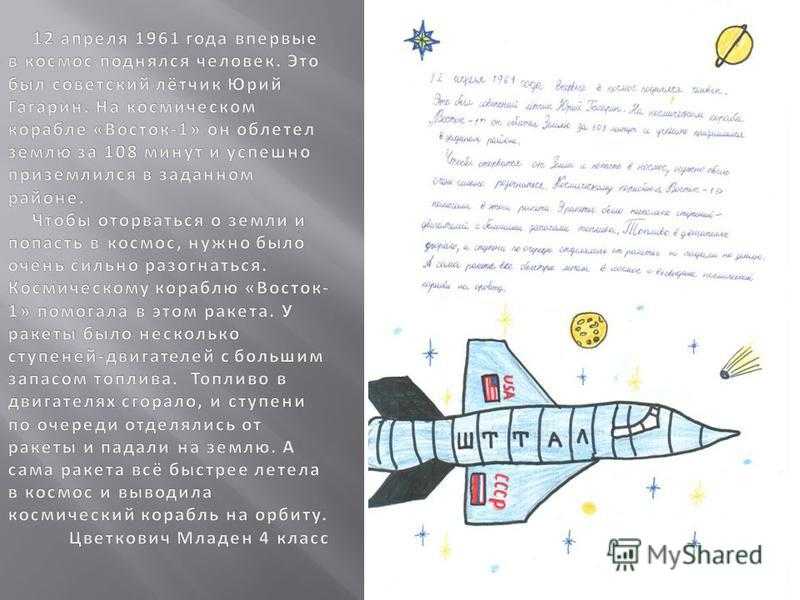 12 апреля 1961 года впервые
в космос поднялся человек. Это
был советский лётчик Юрий
Гагарин. На космическом
корабле «Восток-1» он облетел
землю за 108 минут и успешно
приземлился в заданном
районе.
Чтобы оторваться о земли и
попасть в космос, нужно было
очень сильно разогнаться.
Космическому кораблю «Восток-
1» помогала в этом ракета. У
ракеты было несколько
ступеней-двигателей с большим
запасом топлива. Топливо в
двигателях сгорало, и ступени
по очереди отделялись от
ракеты и падали на землю. А
сама ракета всё быстрее летела
в космос и выводила
космический корабль на орбиту.
Цветкович Младен 4 класс
12 апреля 1961 года в космос поднялся человек.
Это был советский лётчик Юрий Гагарин. На космическом корабле
Восток-1 он облетел Землю за 108 минут и успешно приземлился
в заданом районе.
Чтобы оторватся от Земли и попасть в космос, нужно было
очень сильно разогнаться. Космическому Восток-1
помогала в этом ракета. У ракеты было несколько ступеней-
двигателей с большими запасами топлива. Топливо в двигателях
сгорало, и ступени по очереди отделялись от ракеты и падали на землю.
А сама ракета все быстрее летела в космос и выводила космический
корабль на орбиту.
USA
ШТТАЛ
СССР
MyShared